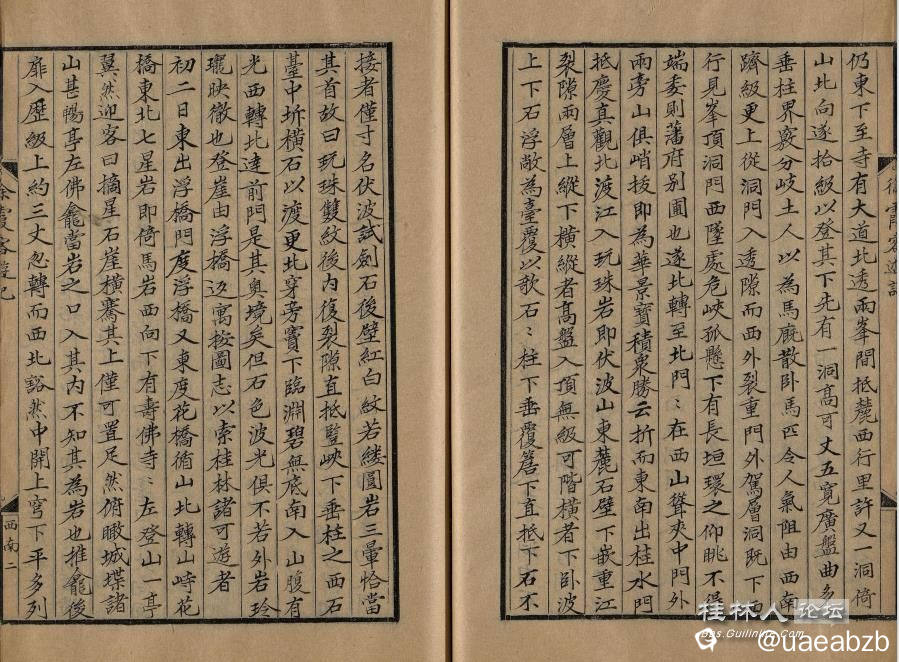 仍東下至寺有大道北透兩峯間抵麓西行里許又一洞倚
山北向遂拾級以登其下先有一洞高可丈五寬廣盤曲多
垂柱界竅分岐土人以為馬廐散卧馬匹令人氣阻由西南
躋級更上從洞門入透隙而西外裂重門外駕層洞既下石
行見峯頂洞門西墜處危峽孤懸下有長垣環之仰眺不得
端委則藩府别圃也遂北轉至北門〻在西山聳夾中門外
兩旁山俱峭拔即為華景寶積泉勝云折而東南出桂水門
抵慶真觀北渡江入玩珠岩即伏波山東麓石壁下嵌重江
裂隙兩層上縱下横縱者高盤入頂無級可階横者下卧波
上下石浮敞為臺覆以歌石〻柱下垂覆簷下直抵下石不
接者僅寸名伏波試劍石後壁紅白紋若縷圓岩三暈恰當
其首故曰玩珠雙紋後内復裂隙直抵豎峽下垂柱之西石
臺中坼横石以渡更北穿旁竇下臨淵碧無底南入山腹有
光西轉北達前門是其奥境矣但石色波光俱不若外岩玲
瓏映徹也登崖由浮橋返寓按圖志以索桂林諸可遊者
初二日東出浮橋門度浮橋又東度花橋循山北轉山峙花
橋東北七星岩即倚焉岩西向下有壽佛寺〻左登山一亭
翼然迎客曰摘星石崖横騫其上僅可置足然俯瞰城堞諸
山甚暢亭左佛龕當岩之口入其内不知其為岩也推龕後
扉入歷級上約三丈忽轉而西北豁然中開上穹下平多列
徐霞客遊記
西南二
桂林人论坛
Bbs.Guilinlife.Com
@uaeabzb